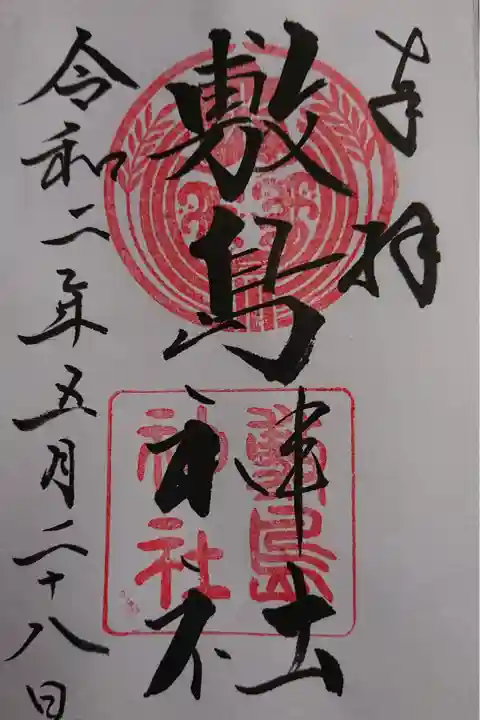 奉拝
敷島神社
敷島
神社
令和二年五月二十八日